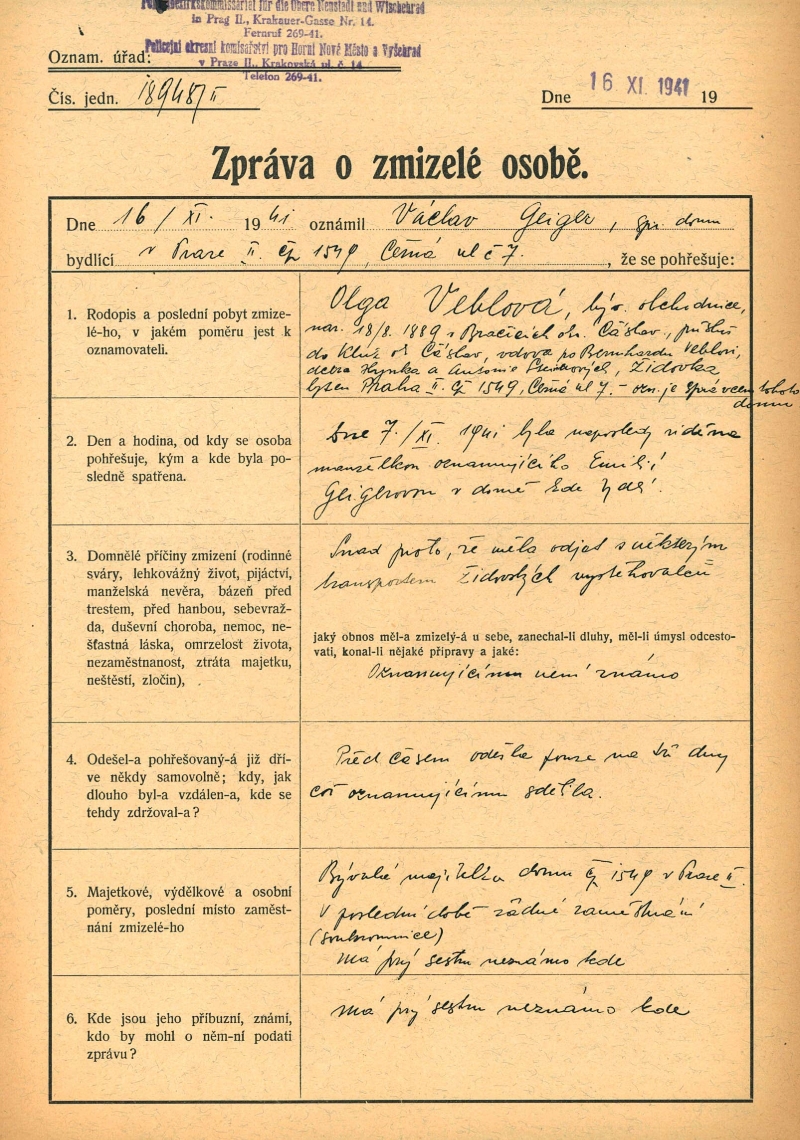 Polizeibezirkskommissariat für die Obere Neustadt und Wischehrad
in Prag II., Krakauer-Gasse Nr. 14.
Fernruf 269-41.
Policejní okresní komisařství pro Horní Nové Město a Vyšehrad
v Praze II., Krakovská ul. č. 14
Telefon 269-41.
Oznam. úřad:
Čís. jedn. 18948/II
Dne 16 XI. 1941 19
Zpráva o zmizelé osobě.
Dne 16/XI. 1941 oznámil Václav Geiger, spr. domu
bydlící v Praze II. čp 1549, Černá ul č 7. , že se pohřešuje:
1. Rodopis a poslední pobyt zmize-
lé-ho, v jakém poměru jest k
oznamovateli.
Olga Veblová, býv. obchodnice,
nar. 18/8. 1889 v Bračicích ok. Čáslav, přísluš
do Kluk ok Čáslav, vdova po Bernhardu Veblovi,
dcera Hynka a Antonie, Židovka
bytem Praha II. čp 1549, Černá ul 7. – ozn. je správcem tohoto
domu
2. Den a hodina, od kdy se osoba
pohřešuje, kým a kde byla po-
sledně spatřena.
Dne 7./XI. 1941 byla naposledy viděna
manželkou oznamujícího Emilií
Geigerovou v domě kde bydlí.
3. Domnělé příčiny zmizení (rodinné
sváry, lehkovážný život, pijáctví,
manželská nevěra, bázeň před
trestem, před hanbou, sebevraž-
da, duševní choroba, nemoc, ne-
šťastná láska, omrzelost života,
nezaměstnanost, ztráta majetku,
neštěstí, zločin),
Snad proto, že měla odjet s některým
transportem Židovských vystěhovalců
jaký obnos měl-a zmizelý-á u sebe, zanechal-li dluhy, měl-li úmysl odcesto-
vati, konal-li nějaké přípravy a jaké:
Oznamujícímu není známo
4. Odešel-a pohřešovaný-á již dří-
ve někdy samovolně; kdy, jak
dlouho byl-a vzdálen-a, kde se
tehdy zdržoval-a?
Před časem odešla pouze na dny
což oznamujícímu sdělila.
5. Majetkové, výdělkové a osobní
poměry, poslední místo zaměst-
nání zmizelé-ho
Bývalá majitelka domu čp 1549 v Praze II.
V poslední době žádné zaměstnání
(soukromnice)
Má prý sestru neznámo kde
6. Kde jsou jeho příbuzní, známí,
kdo by mohl o něm-ní podati
zprávu?
Má prý sestru neznámo kde